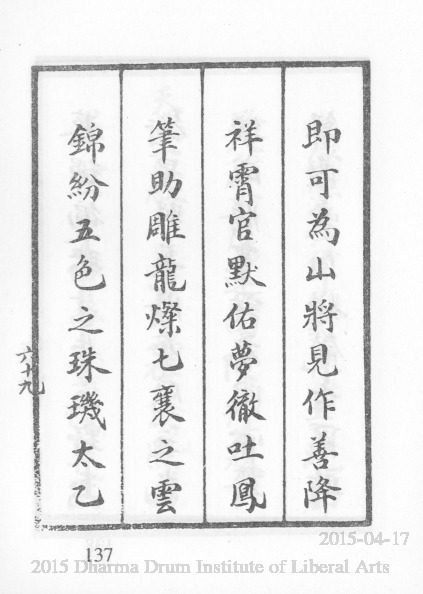 即可為山將見作善降
祥霄官默佑夢徹吐鳳
筆助雕龍燦七襄之雲
錦紛五色之珠璣太乙
六十九
137
2015-04-17
2015 Dharma Drum Institute of Liberal Arts